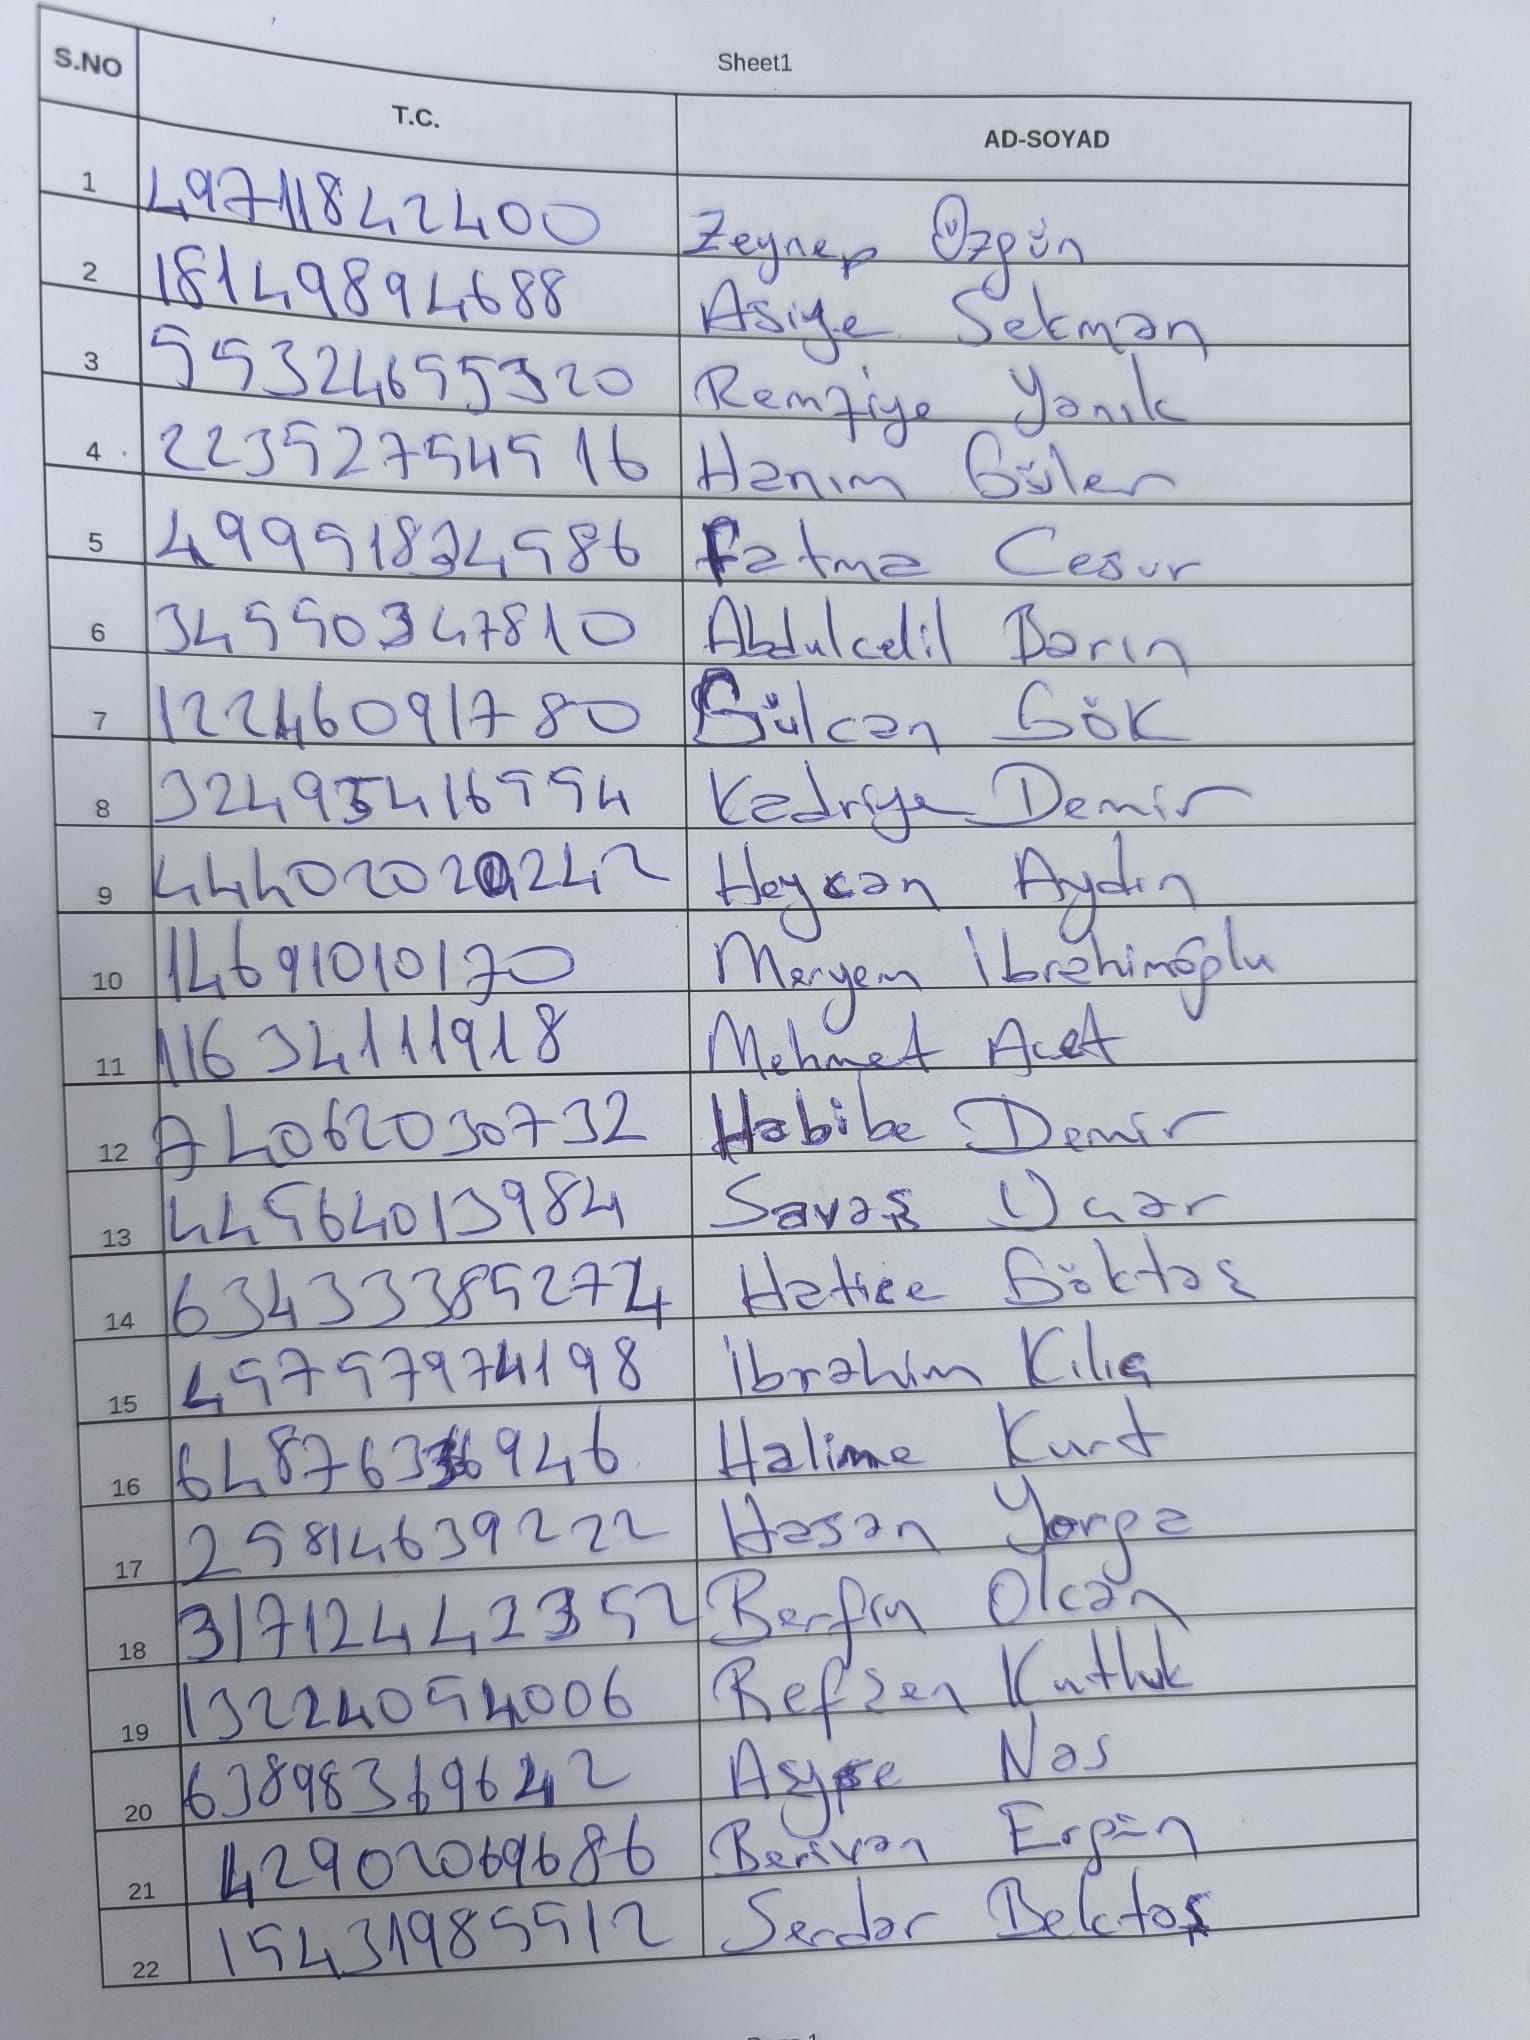 Sheet1
S.NO T.C. AD-SOYAD
1 49711842400 Zeynep Özgün
2 18149894688 Asiye Sekman
3 55324655320 Remziye Yanık
4 22352754516 Hanım Güler
5 49951834586 Fatma Cesur
6 34550347810 Abdulcelil Barın
7 12246091780 Gülcan Gök
8 32495416554 Kadriye Demir
9 44402020242 Heycan Aydın
10 14691010170 Meryem İbrahimoğlu
11 11634111918 Mehmet Acet
12 74062030732 Habibe Demir
13 44564013984 Savaş Uçar
14 63433385274 Hatice Göktaş
15 45757974198 İbrahim Kılıç
16 64876336946 Halime Kurt
17 25814639222 Hasan Yorga
18 31712442352 Berfin Olcan
19 13224054006 Refşen Kutluk
20 63898369642 Ayşe Nas
21 42902069686 Berivan Ergün
22 15431985512 Serdar Bektaş